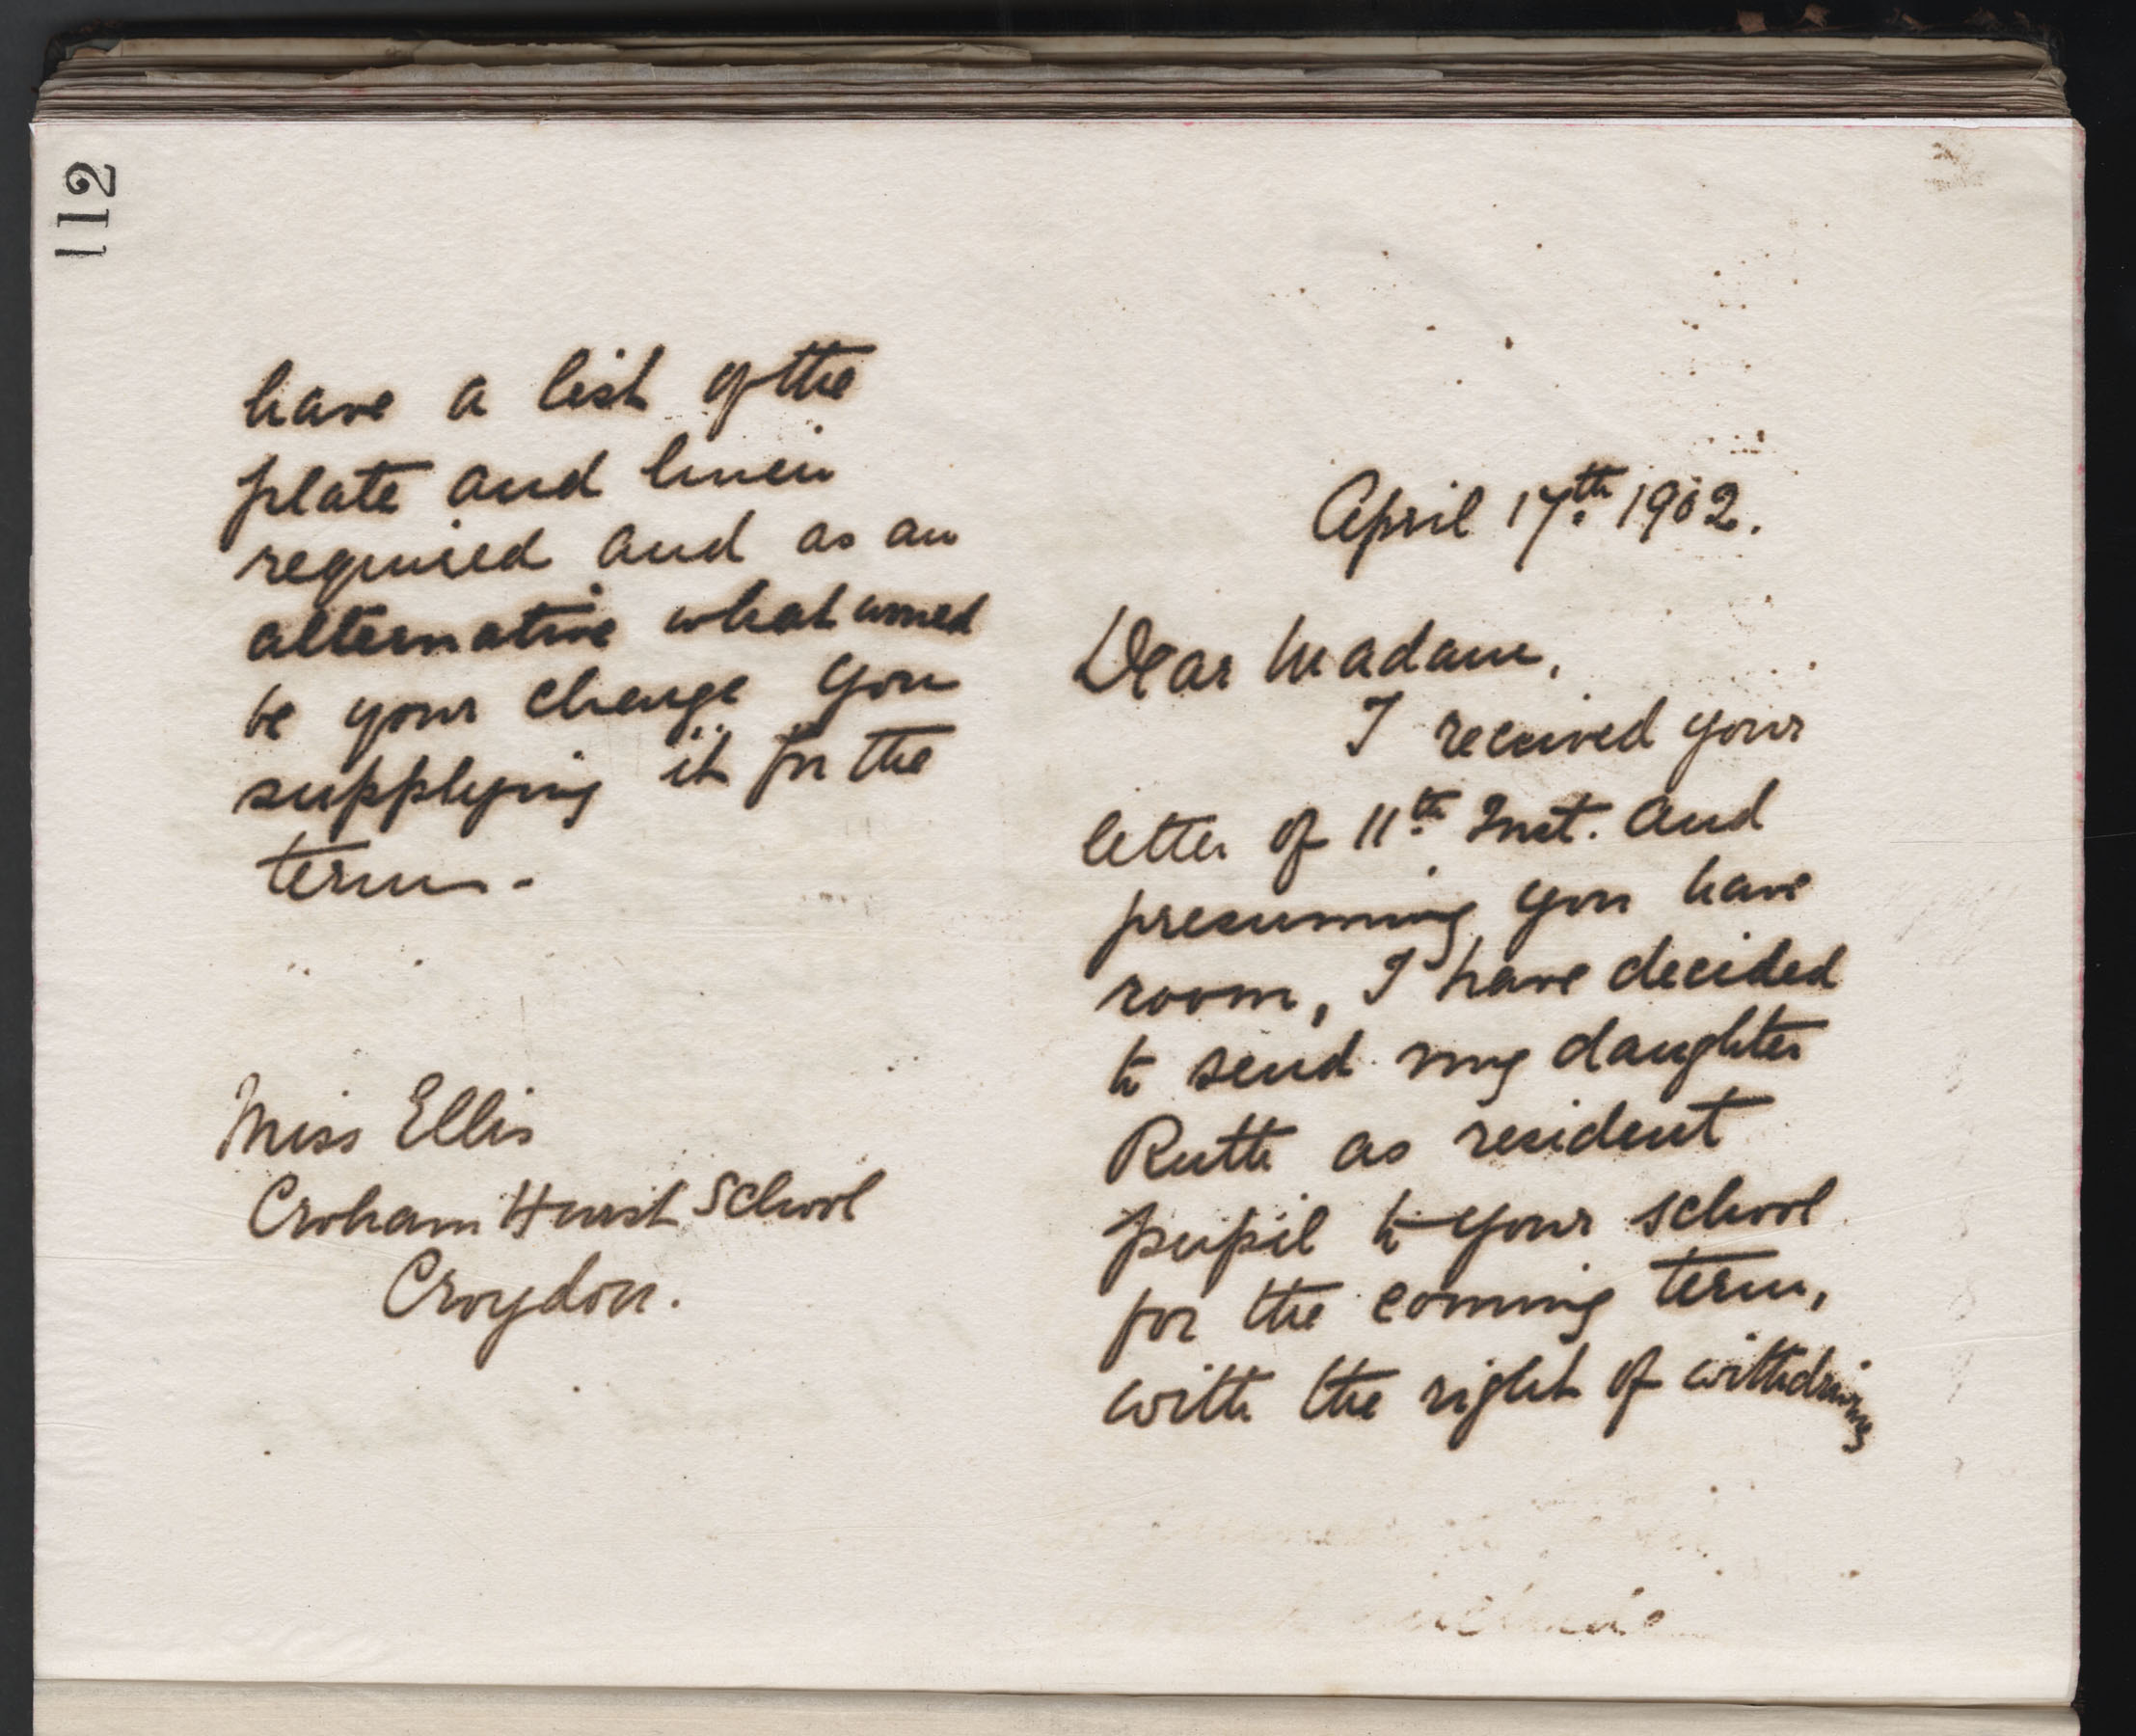 112
have a list of the
plate and linen
required and as an
alternative what would
be your charge you
supplying it for the
term -
Miss Ellis
Croham Hurst School
Croydon.
April 17th 1902.
Dear Madam,
I received your
letter of 11th Inst. and
presuming you have
room, I have decided
to send my daughter
Ruth as resident
pupil to your school
for the coming term,
with the right of withdrawing